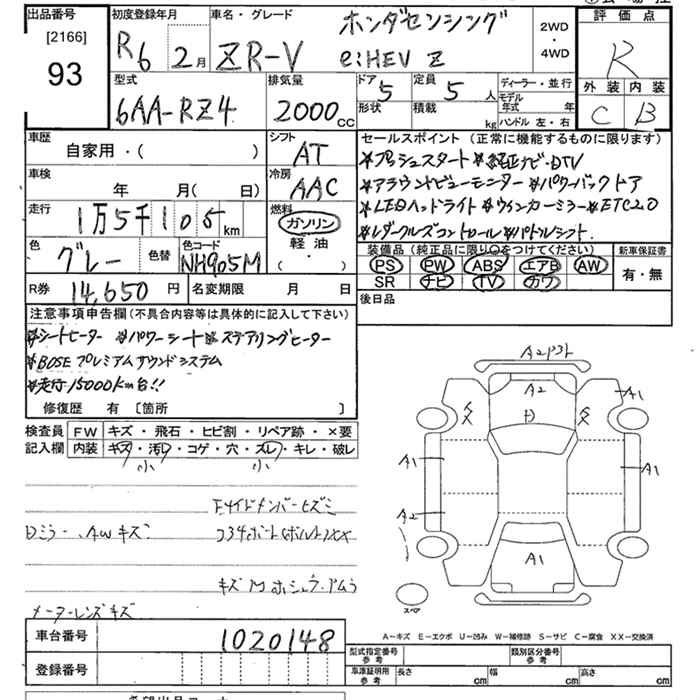 出品番号
[2166]
93
初度登録年月
R6 2月
車名・グレード
ホンダセンシング
ZR-V e:HEV Z
2WD
・
4WD
評価点
R
外装 内装
C B
型式
6AA-RZ4
排気量
2000cc
ドア 5
定員 5人
形状
積載 kg
ディーラー・並行
モデル年式 年
ハンドル 左・右
車歴
自家用・( )
シフト
AT
車検
年 月( 日)
冷房
AAC
走行
1万5千105km
燃料
ガソリン
軽油
( ・ )
色
グレー
色替
色コード
NH905M
R券 14,650円
名変期限 月 日
セールスポイント(正常に機能するものに限ります)
*プッシュスタート*純正ナビ・DTV
*アラウンドビューモニター*パワーバックドア
*LEDヘッドライト*ウィンカーミラー*ETC2.0
*レーダークルーズコントロール*パドルシフト
装備品(純正品に限り○をつけてください)
PS PW ABS エアB AW
SR ナビ TV カワ
新車保証書
有・無
後日品
注意事項申告欄(不具合内容等は具体的に記入して下さい)
*シートヒーター *パワーシート*ステアリングヒーター
*BOSEプレミアムサウンドシステム
*走行15000km台!!
修復歴 有 [箇所 ]
検査員記入欄
FW キズ・飛石・ヒビ割・リペア跡・×要
内装 キズ・汚れ・コゲ・穴・スレ・キレ・破レ
小 小
Dミラー、AWキズ
メーターレンズキズ
A2
A1
A1
A1
A2
A1
スペア
A-キズ E-エクボ U-凹み W-補修跡 S-サビ C-腐食 XX-交換済
車台番号 1020148
登録番号
型式指定番号
参考
類別区分番号
参考
車庫証明用
参考
長さ cm
幅 cm
高さ cm